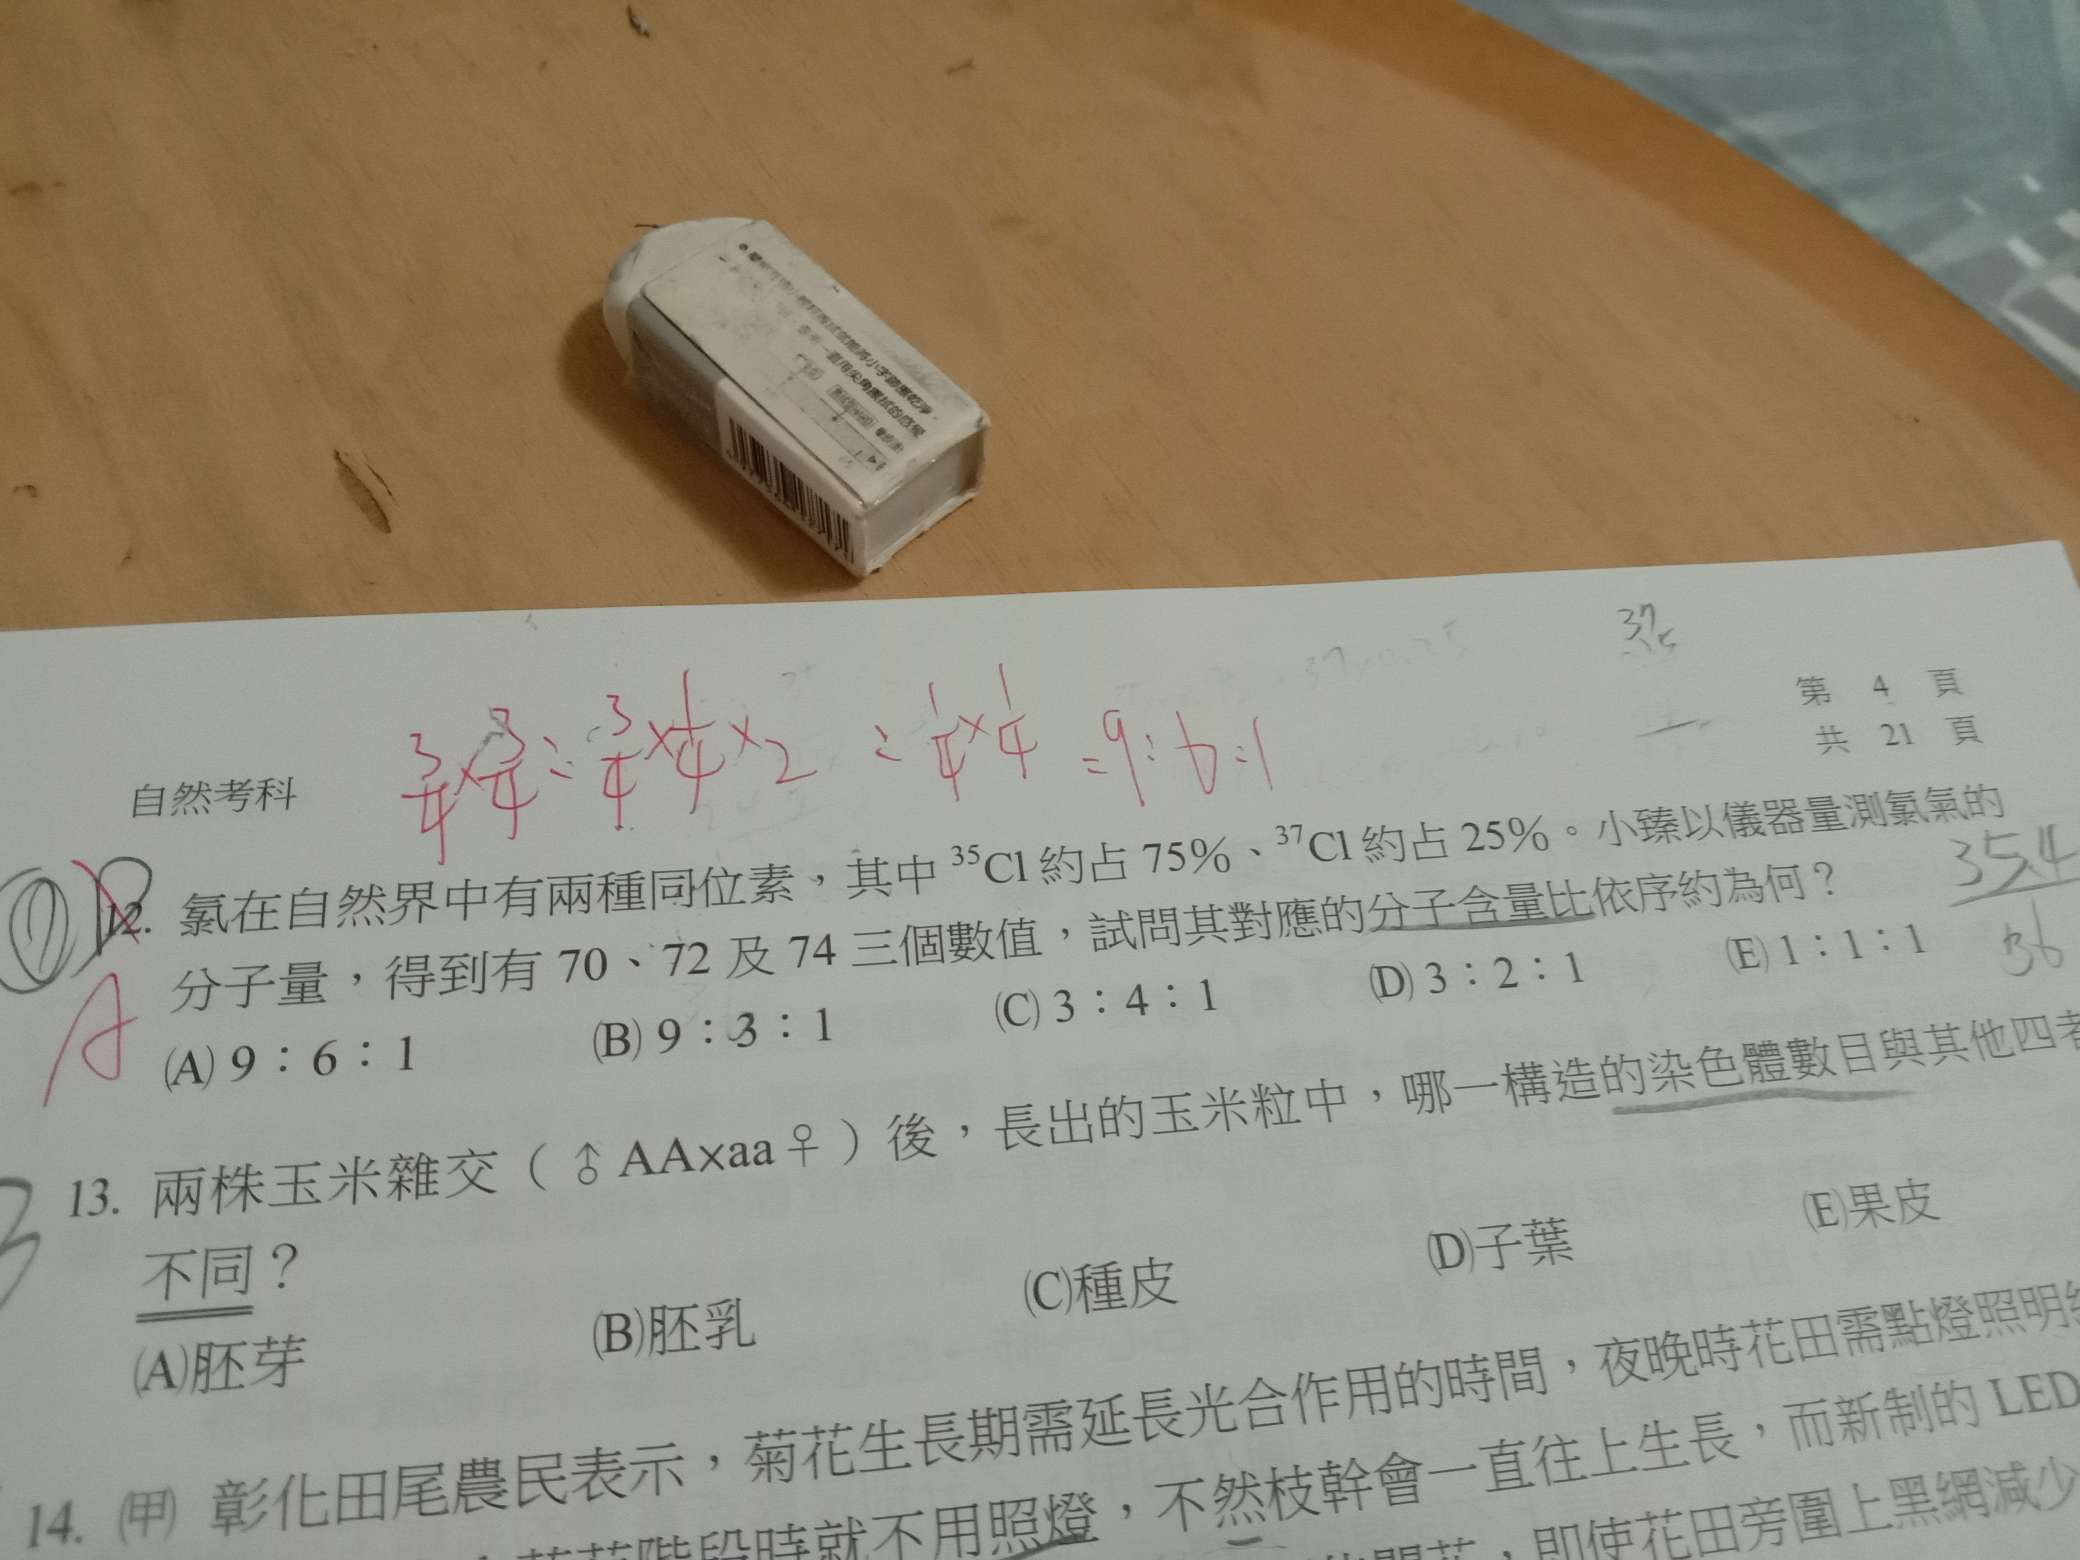 37
第 4 頁
共 21 頁
自然考科
3/4 × 3/4 : 3/4 × 1/4 × 2 : 1/4 × 1/4 = 9 : 6 : 1
12. 氯在自然界中有兩種同位素，其中 ³⁵Cl 約占 75%、³⁷Cl 約占 25%。小臻以儀器量測氯氣的
分子量，得到有 70、72 及 74 三個數值，試問其對應的分子含量比依序約為何？
354
36
A
(A) 9：6：1 (B) 9：3：1 (C) 3：4：1 (D) 3：2：1 (E) 1：1：1
13. 兩株玉米雜交（♂AA×aa♀）後，長出的玉米粒中，哪一構造的染色體數目與其他四者
不同？
(A)胚芽 (B)胚乳 (C)種皮 (D)子葉 (E)果皮
14. ㈙ 彰化田尾農民表示，菊花生長期需延長光合作用的時間，夜晚時花田需點燈照明
階段時就不用照燈，不然枝幹會一直往上生長，而新制的 LED
開花，即使花田旁圍上黑網減少